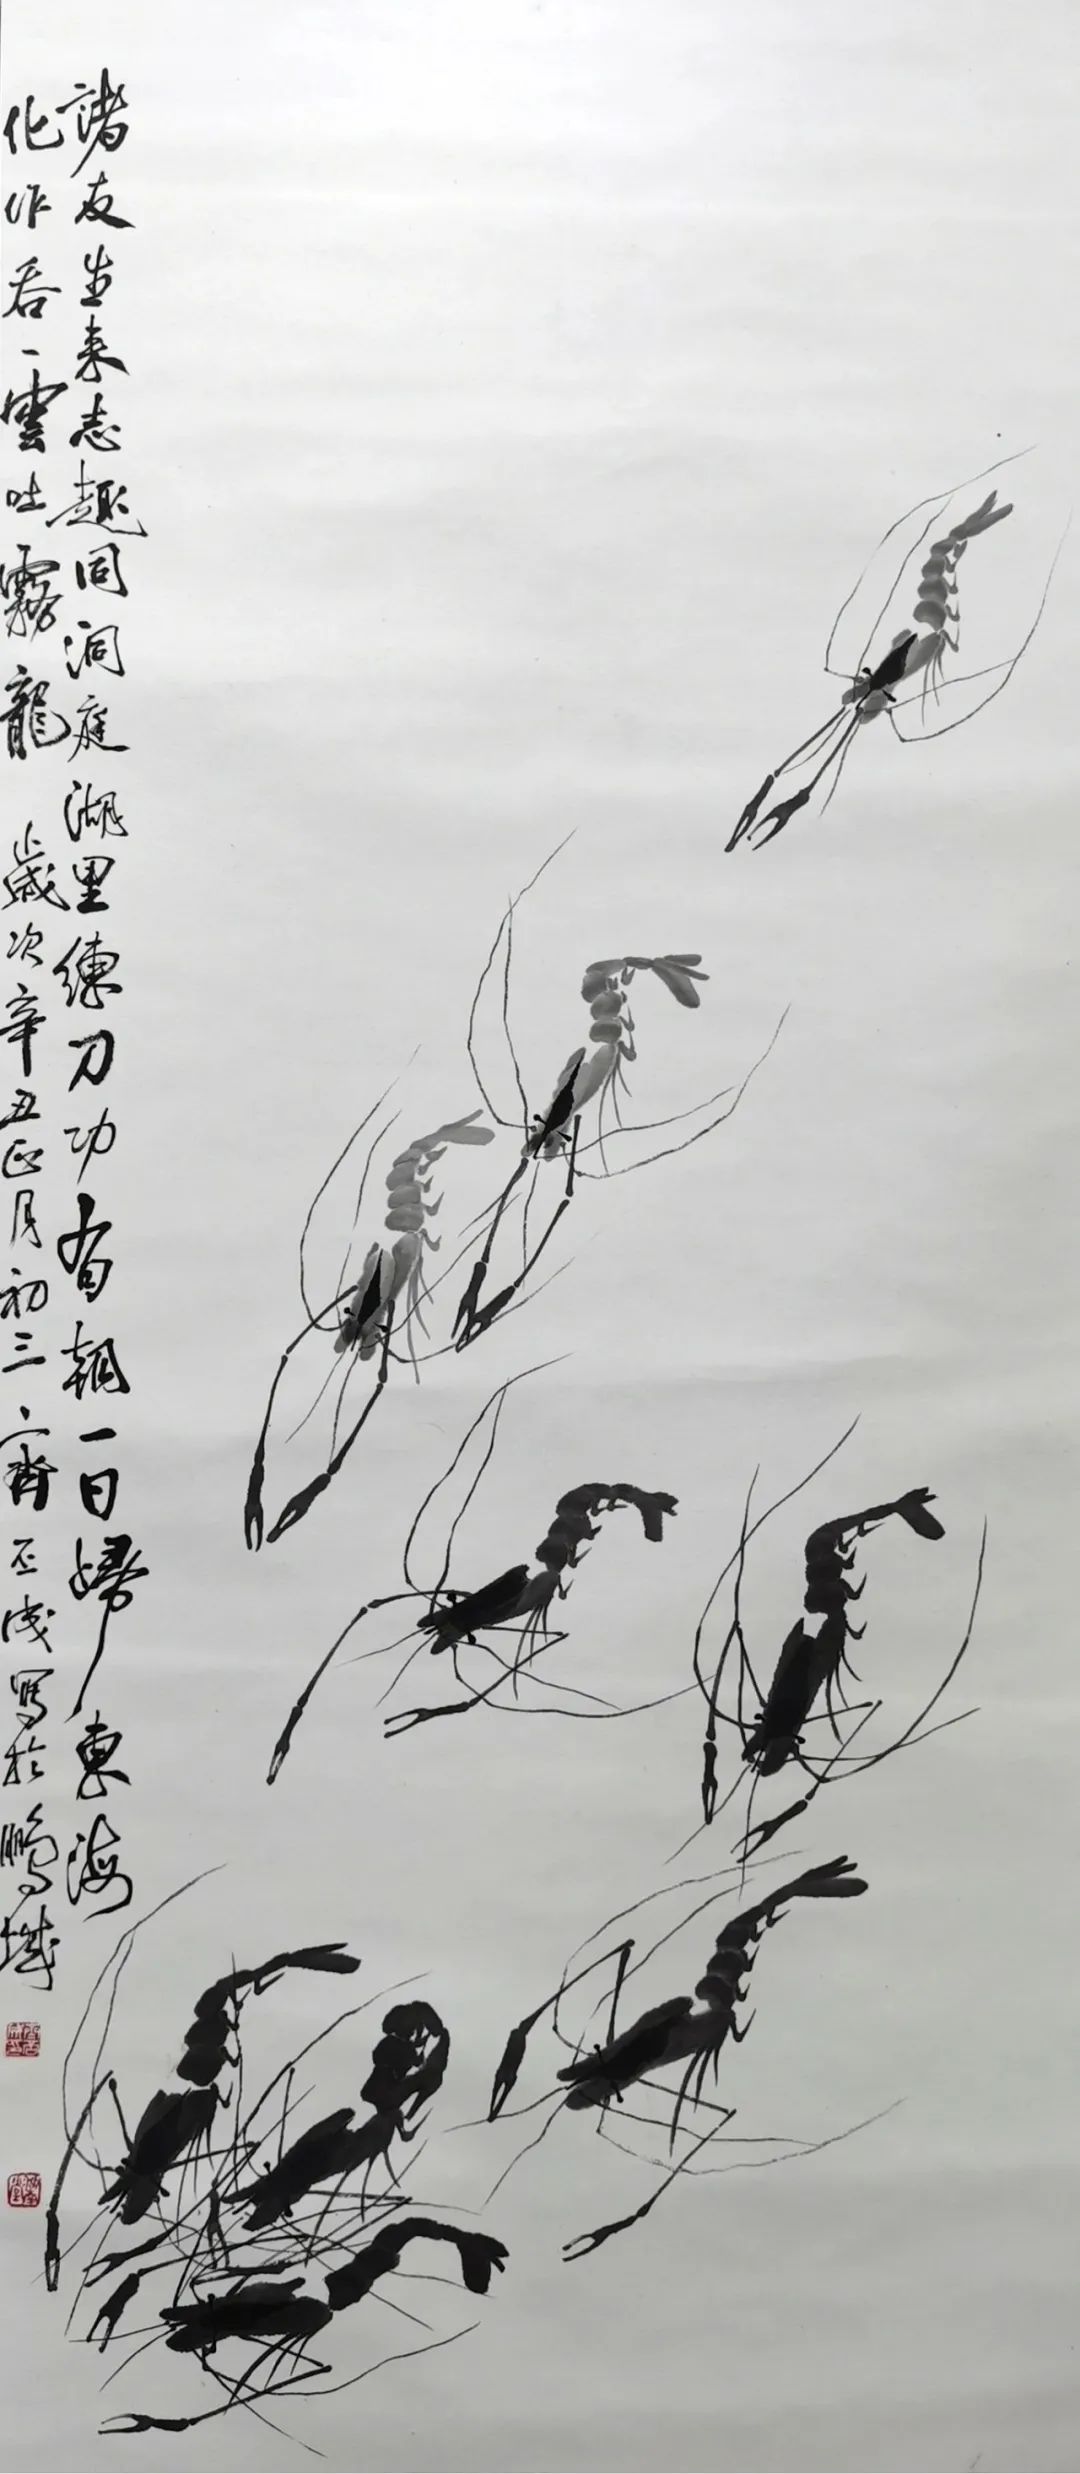 諸友生来志趣同洞庭湖里練刀功有朝一日歸東海
化作吞雲吐霧龍 歲次辛丑正月初三齊丕成寫於鵬城